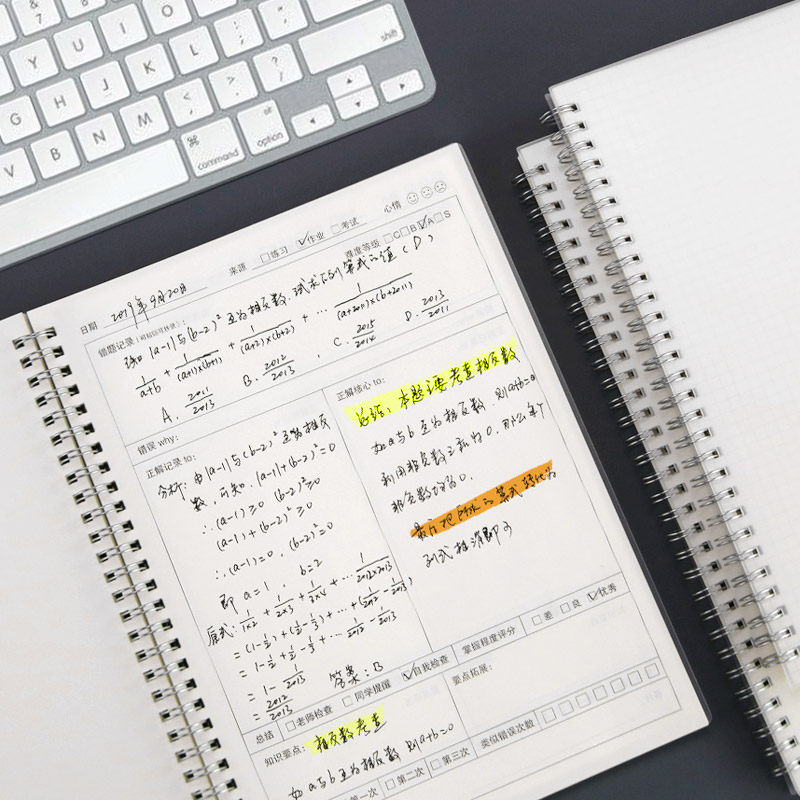 & 7 8
Y U I O P { [ } ]
G H J K L : ; " '
V B N M < , > . ? / shift
⌘ command alt option
日期 2019年9月20日 来源 □练习 ☑作业 □考试 心情
错题记录 难度等级 □C□B☑A□S
已知 |a-1|与(b-2)²互为相反数,试求下列算式的值(D)
1/(a+b) + 1/((a+1)×(b+1)) + 1/((a+2)×(b+2)) + ··· 1/((a+2011)×(b+2011))
A. 2011/2013 B. 2012/2013 C. 2015/2014 D. 2013/2011
错误 why:
正解记录 to:
分析:由|a-1|与(b-2)²互为相反
数,可知,|a-1|+(b-2)²=0
∴(a-1)≥0 (b-2)²≥0
(a-1)+(b-2)²≥0
∴(a-1)=0,(b-2)²=0
即 a=1, b=2
原式:1/(1×2) + 1/(2×3) + 1/(3×4) + ··· 1/(2012×2013)
=(1-1/2)+(1/2-1/3)+···+(1/2012-1/2013)
=1-1/2+1/2-1/3+···1/2012-1/2013
=1-1/2013
=2012/2013
答案:B
正解核心 to:
总结:本题主要考查相反数
如a与b互为相反数,则a+b=0
利用非负数之和为0,那么每个
非负数均为0.
最后把所求的算式转化为
列式抵消即可
总结 □老师检查 □同学提醒 ☑自我检查 掌握程度评分 □差 □良 ☑优秀
知识要点:相反数考查
如a与b为相反数 则a+b=0
要点拓展:
第一次 □第二次 □第三次 类似错误次数 □□□□□□□